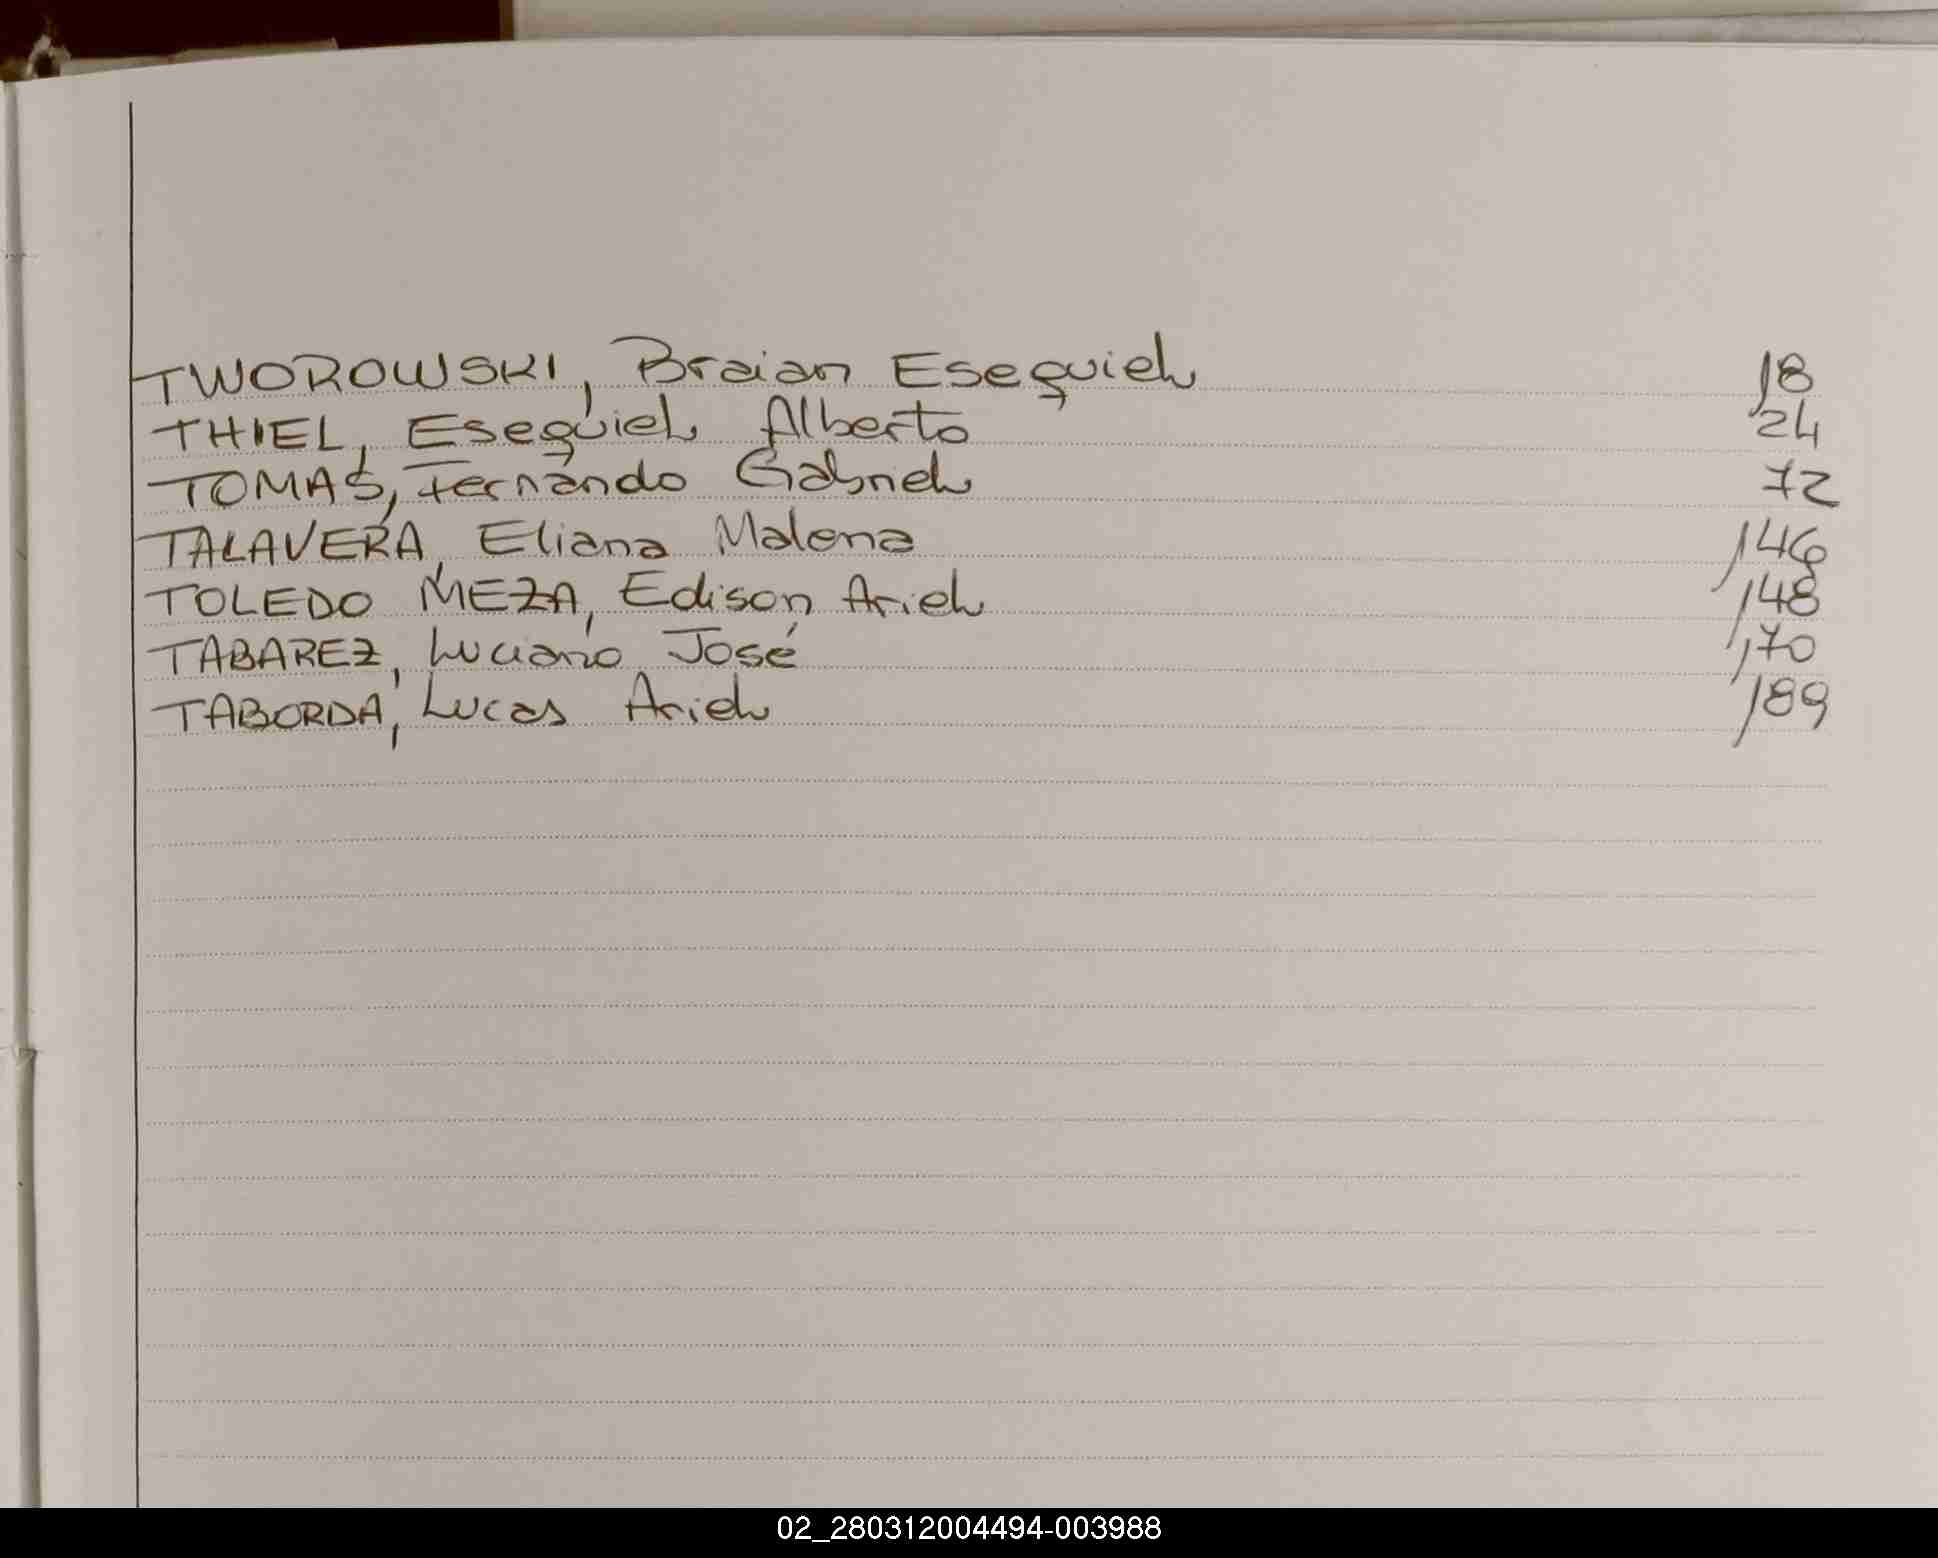 TWOROWSKI, Braian Esequiel 18
THIEL, Esequiel Alberto 24
TOMAS, Fernando Gabriel 72
TALAVERA, Eliana Malena 146
TOLEDO MEZA, Edison Ariel 148
TABAREZ, Luciano José 170
TABORDA, Lucas Ariel 189
02_280312004494-003988